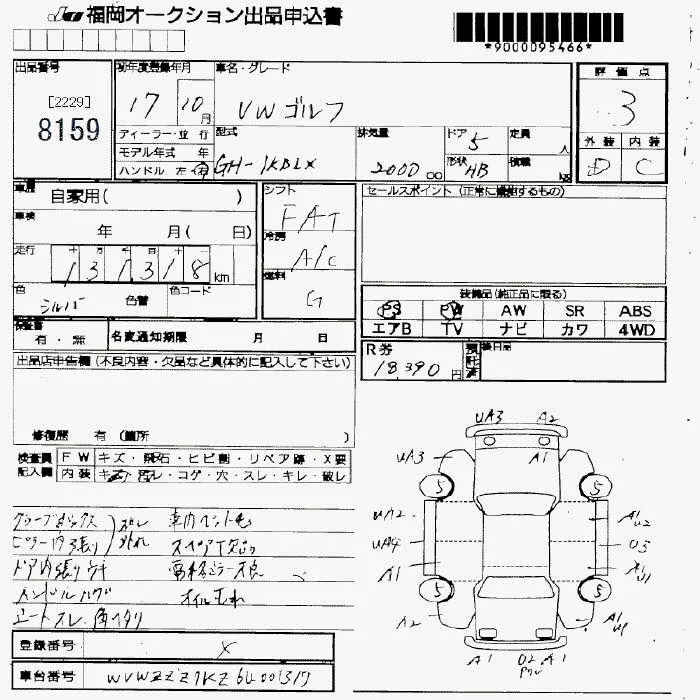 JU 福岡オークション出品申込書
*9000095466*
出品番号
[2229]
8159
初年度登録年月
17 10 月
ディーラー・並 行
モデル年式 年
ハンドル 左・右
車名・グレード
VWゴルフ
型式
GH-1KBLX
排気量
2000 cc
ドア
5
形状
HB
定員
人
積載
kg
評価点
3
外装 内装
D C
車歴
自家用( )
車検
年 月( 日)
走行
十 万 千 百 十 一
131318 km
色
シルバ
色替
色コード
シフト
FAT
冷房
A/C
燃料
G
セールスポイント (正常に機能するもの)
装備品(純正品に限る)
PS PW AW SR ABS
エアB TV ナビ カワ 4WD
検査書
有・無
名変通知期限 月 日
R券
18390 円
預託済
後日品
出品店申告欄 (不良内容・欠品など具体的に記入して下さい)
修復歴 有 (箇所 )
検査員記入欄
FW キズ・飛石・ヒビ割・リペア跡・X要
内装 キズ・汚レ・コゲ・穴・スレ・キレ・破レ
グローブボックス
ピラー内張り
外れ
車内ペット毛
ドア内張りウキ
オイルもれ
ハンドルハゲ
シートスレ
登録番号 X
車台番号
UA3 A2
UA3 A1
5 5
UA2 A1 U2
UA4 U3
A1
5 5
A2 A1
A1 U2 A1